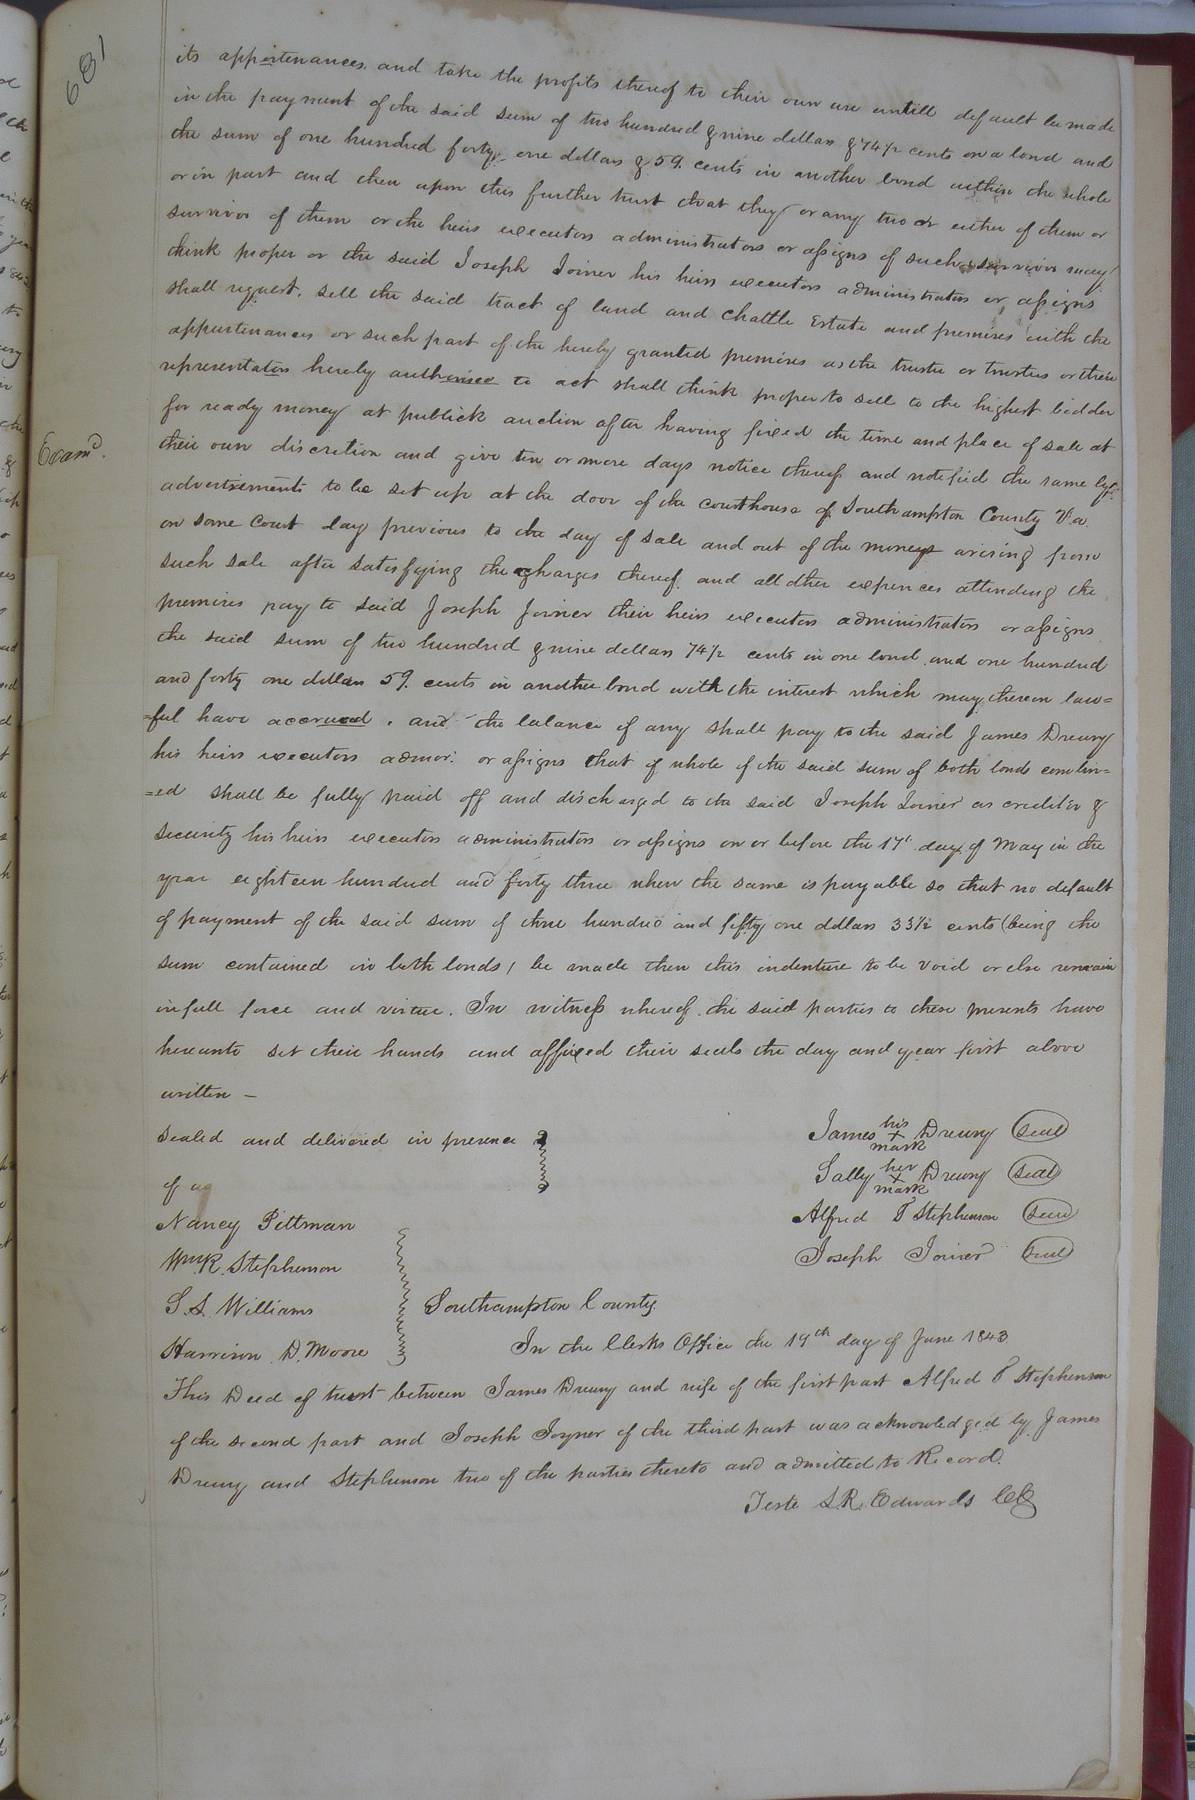 681
its appurtenances, and take the profits thereof to their own use untill default be made
in the payment of the said sum of two hundred & nine dollars & 74 1/2 cents on a bond and
the sum of one hundred forty one dollars & 59 cents in another bond within the whole
or in part and then upon this further trust that they or any two or either of them or
survivor of them or the heirs executors administrators or assigns of such survivor may
think proper or the said Joseph Joiner his heirs executors administrators or assigns
shall request, sell the said tract of land and chattle Estate and premises with the
appurtenances or such part of the hereby granted premises as the trustee or trustees or their
representators hereby authorised to act shall think proper to sell to the highest bidder
for ready money at publick auction after having fixed the time and place of sale at
Examd.
their own discretion and give ten or more days notice thereof and notified the same by
advertisements to be set up at the door of the courthouse of Southampton County Va.
on some Court day previous to the day of sale and out of the moneys arising from
such sale after satisfying the charges thereof and all other expences attending the
premises pay to said Joseph Joiner their heirs executors administrators or assigns
the said sum of two hundred & nine dollars 74 1/2 cents in one bond and one hundred
and forty one dollars 59 cents in another bond with the interest which may thereon law=
=ful have accrued, and the balance if any shall pay to the said James Drewry
his heirs executors admor: or assigns that if whole of the said sum of both bonds combin=
=ed shall be fully paid off and discharged to the said Joseph Joiner as creditor &
security his heirs executors administrators or assigns on or before the 17t day of May in the
year eighteen hundred and forty three when the same is payable so that no default
of payment of the said sum of three hundred and fifty one dollars 33 1/2 cents (being the
sum contained in both bonds) be made then this indenture to be void or else remain
in full force and virtue. In witness whereof the said parties to these presents have
hereunto set their hands and affixed their seals the day and year first above
written —
Sealed and delivered in presence
of us
James his + mark Drewry (seal)
Sally her + mark Drewry (seal)
Alfred T Stephenson (seal)
Joseph Joiner (seal)
Nancy Pittman
Wm. R. Stephenson
S. S. Williams
Harrison D. Moore
Southampton County
In the Clerks Office the 19th day of June 1843
This Deed of trust between James Drewry and wife of the first part Alfred T Stephenson
of the second part and Joseph Joyner of the third part was acknowledged by James
Drewry and Stephenson two of the parties thereto and admitted to Record.
Teste L. R. Edwards CC